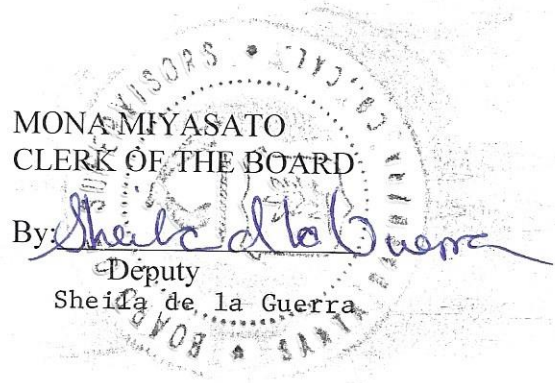 MONA MIYASATO
CLERK OF THE BOARD
By: Sheila de la Guerra
Deputy
Sheila de la Guerra
BOARD